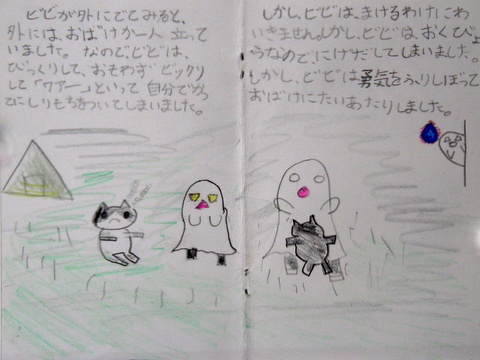 ビビが外にでてみると、
外には、おばけが一人 立って
いました。 なのでビビは、
びっくりして、おもわず ビックリ
して「ワアー」といって 自分で
てにしりもちをついてしまいました。
しかし、ビビは、まけるわけにわ
いきません。しかし、ビビは、おくびょ
うなので にげだしてしまいました。
しかし、ビビは勇気をふりしぼって
おばけにたいあたりしました。